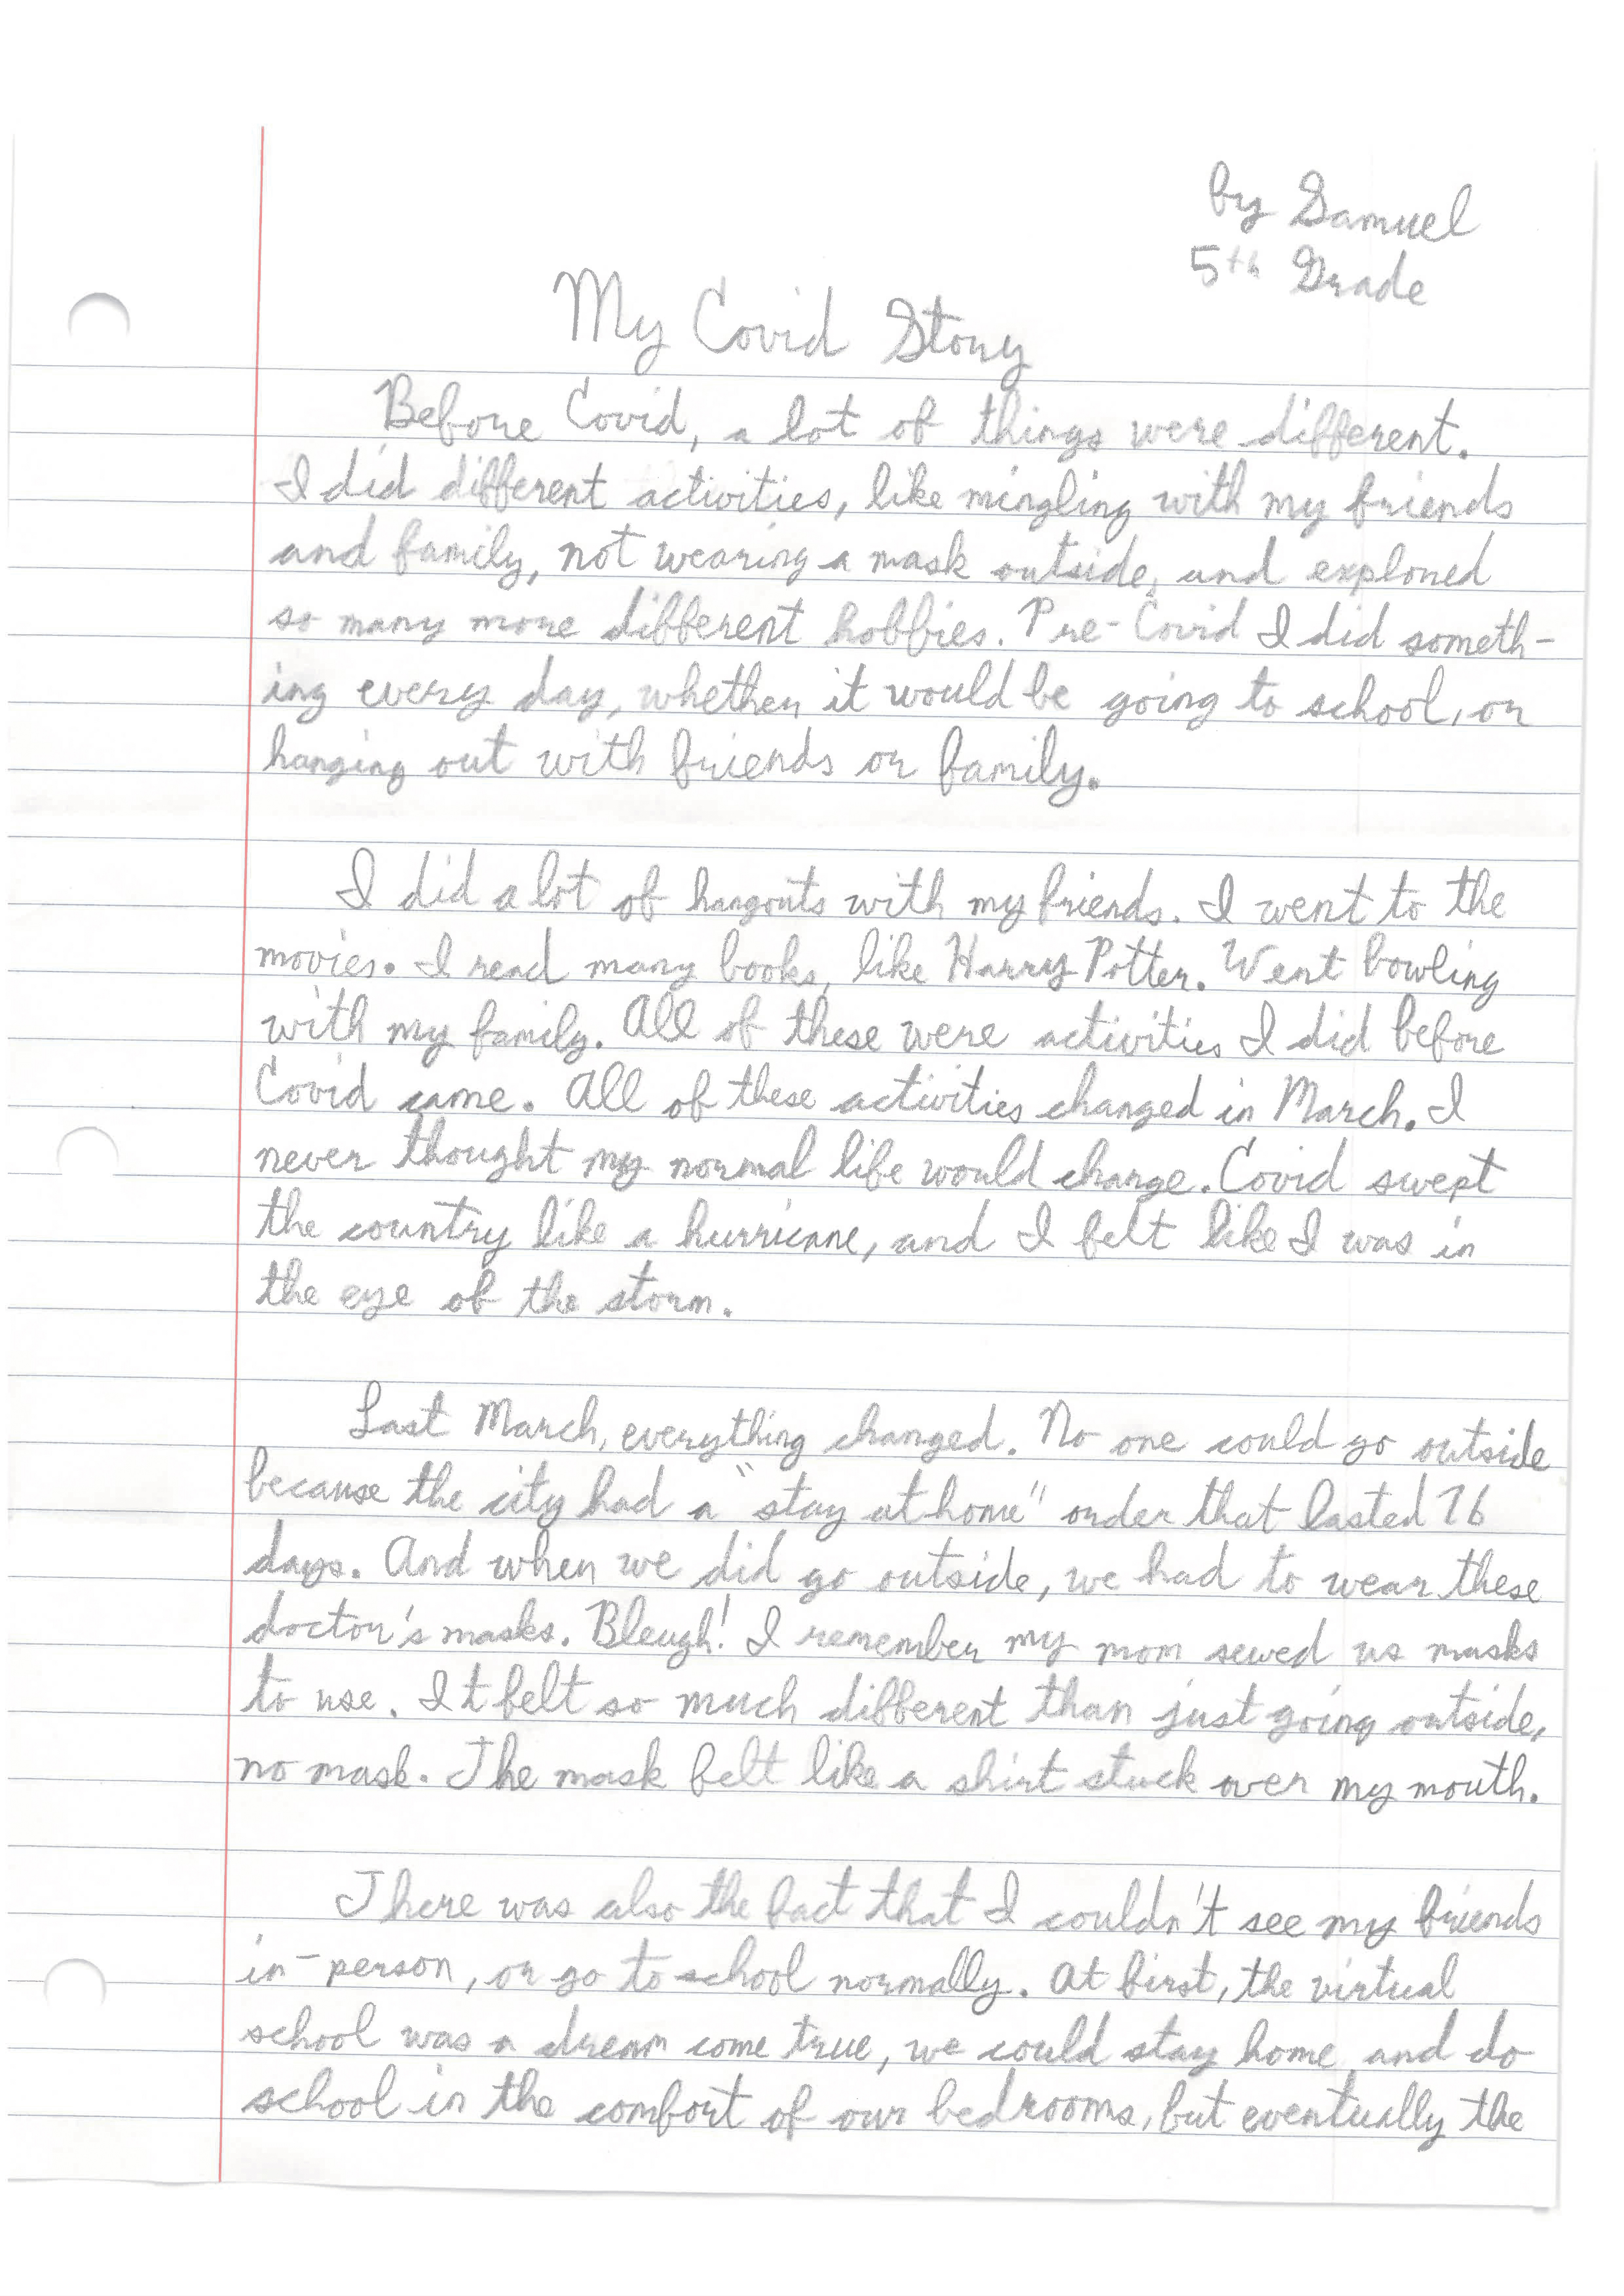 by Samuel
5th Grade
My Covid Story
Before Covid, a lot of things were different.
I did different activities, like mingling with my friends
and family, not wearing a mask outside, and explored
so many more different hobbies. Pre-Covid I did someth-
ing every day, whether it would be going to school, or
hanging out with friends or family.
I did a lot of hangouts with my friends. I went to the
movies. I read many books, like Harry Potter. Went bowling
with my family. All of these were activities I did before
Covid came. All of these activities changed in March. I
never thought my normal life would change. Covid swept
the country like a hurricane, and I felt like I was in
the eye of the storm.
Last March, everything changed. No one could go outside
because the city had a "stay at home" order that lasted 76
days. And when we did go outside, we had to wear these
doctor's masks. Bleugh! I remember my mom sewed us masks
to use. It felt so much different than just going outside,
no mask. The mask felt like a shirt stuck over my mouth.
There was also the fact that I couldn't see my friends
in-person, or go to school normally. At first, the virtual
school was a dream come true, we could stay home and do
school in the comfort of our bedrooms, but eventually the